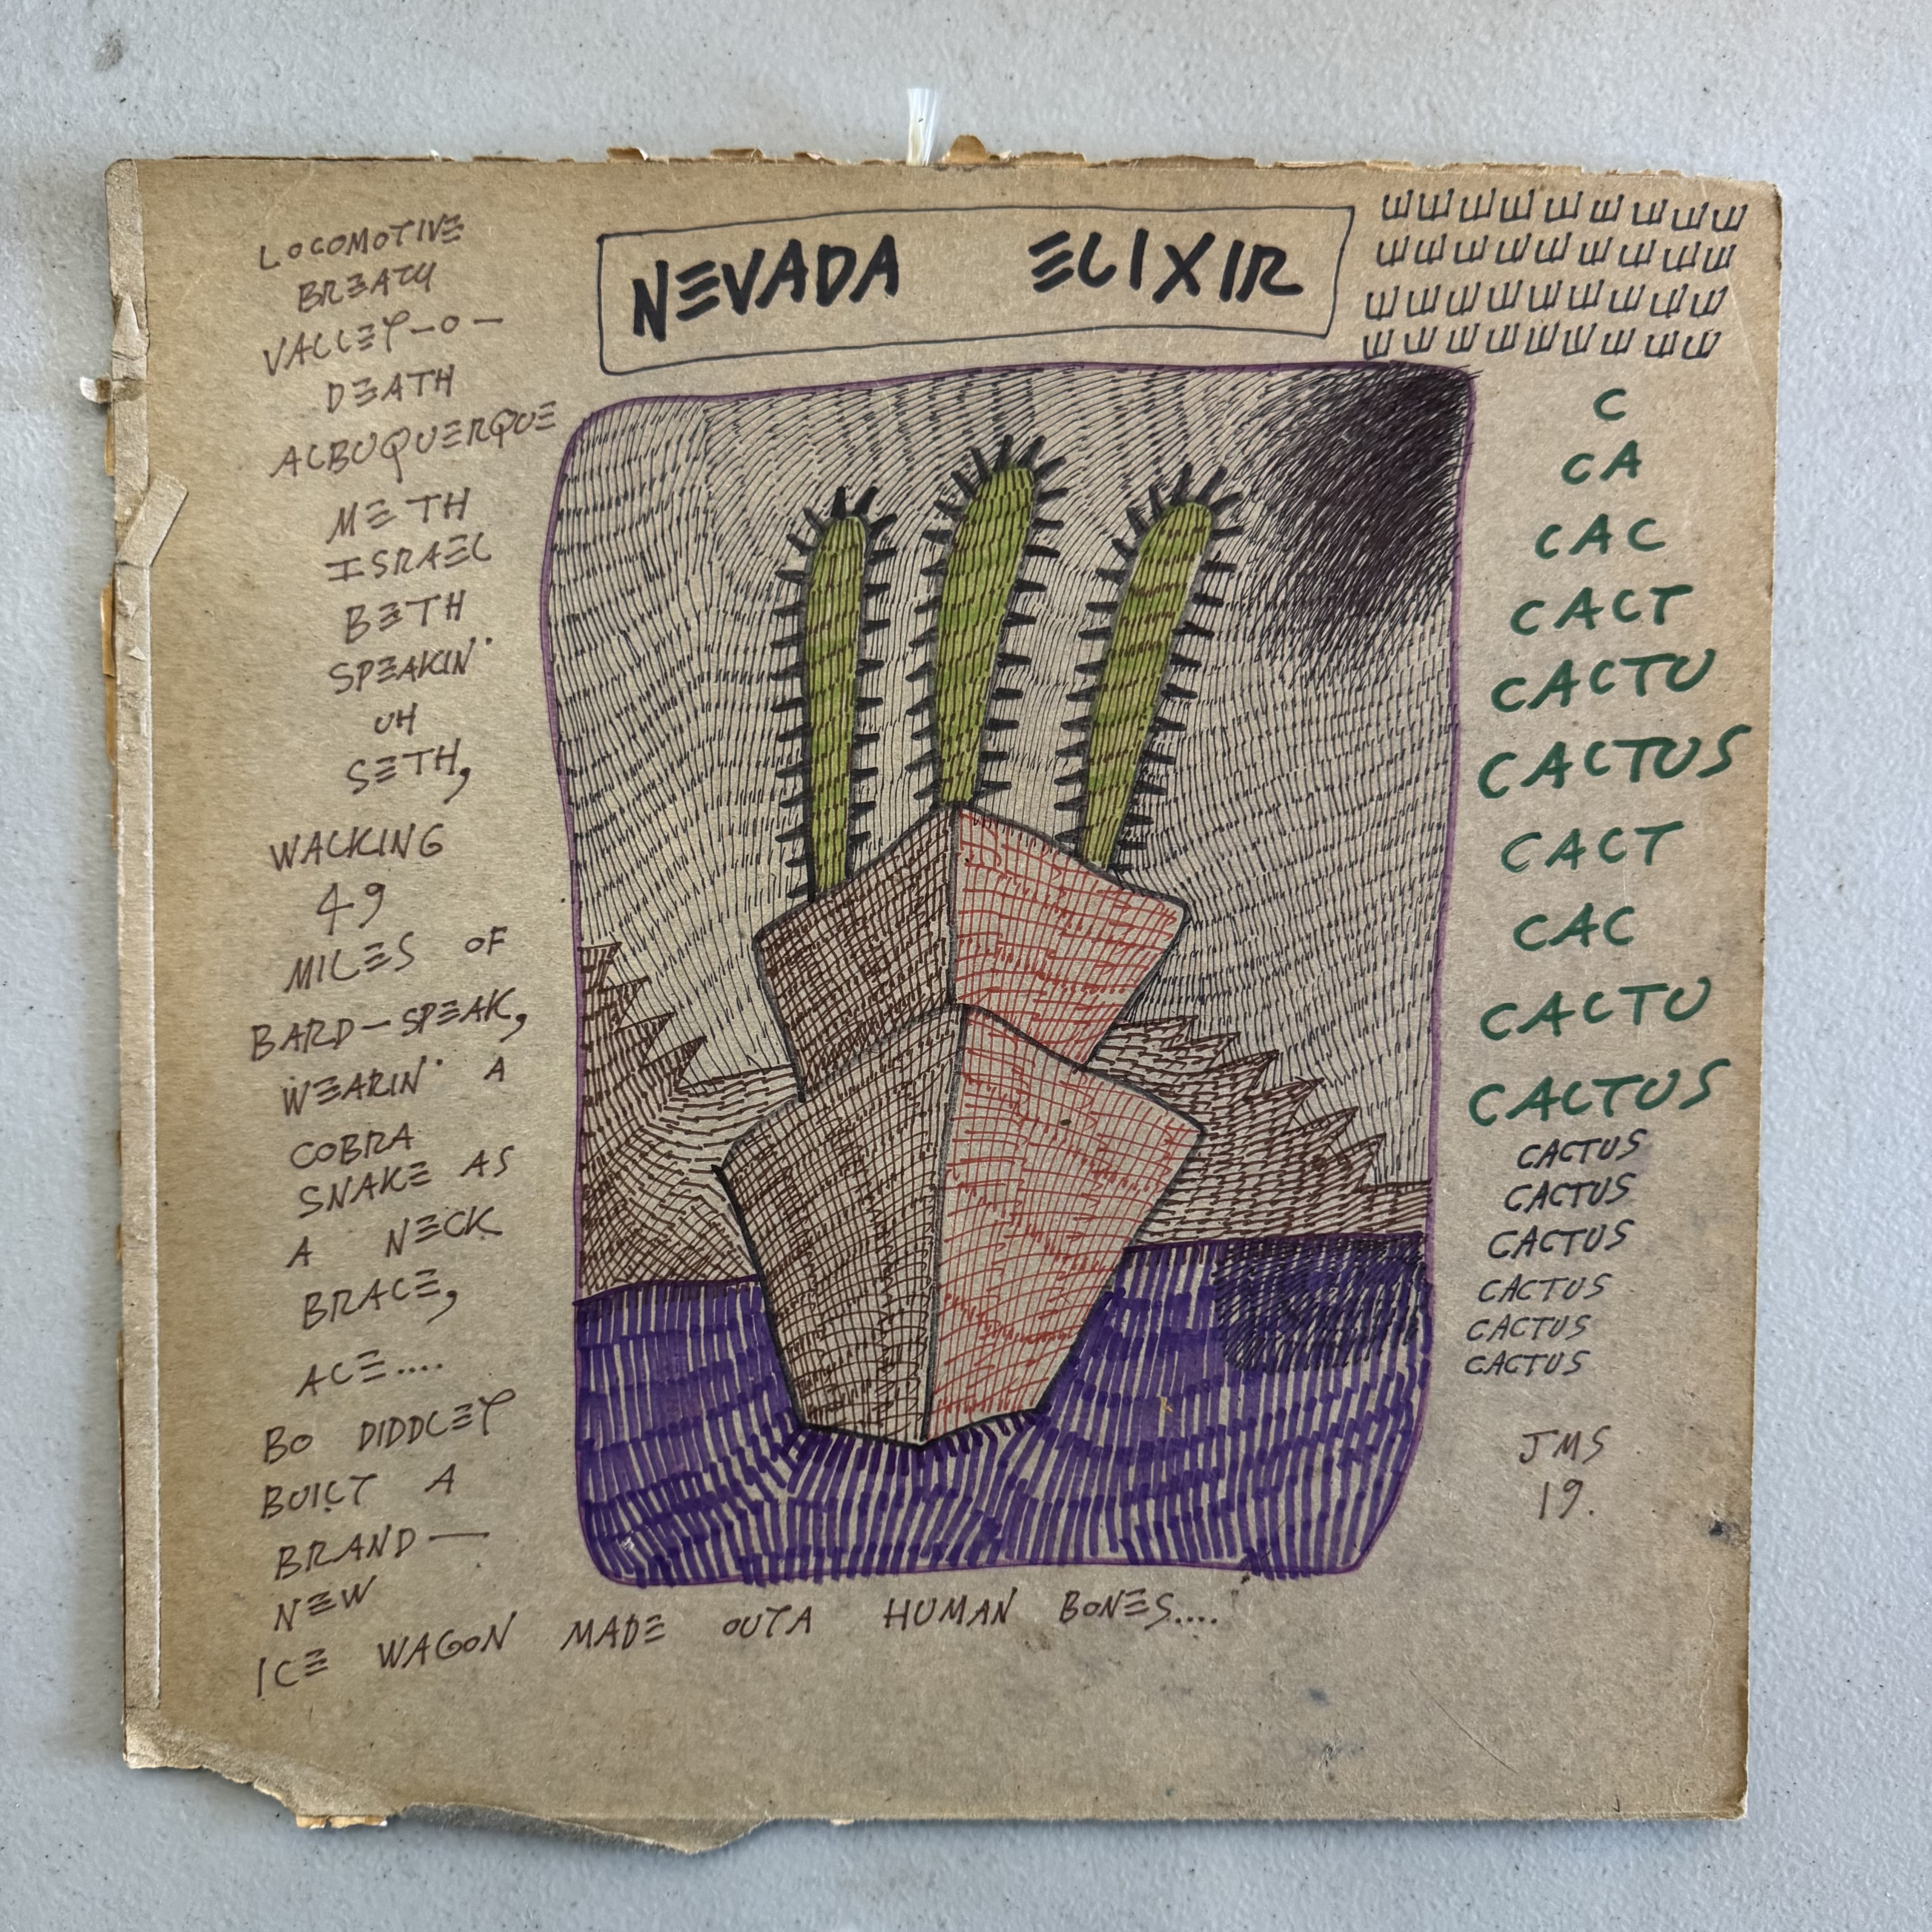 NEVADA ELIXIR
LOCOMOTIVE
BREATH
VALLEY-O-
DEATH
ALBUQUERQUE
METH
ISRAEL
BETH
SPEAKIN'
UH
SETH,
WALKING
49
MILES OF
BARD-SPEAK,
WEARIN' A
COBRA
SNAKE AS
A NECK
BRACE,
ACE....
BO DIDDLEY
BUILT A
BRAND—
NEW
ICE WAGON MADE OUTA HUMAN BONES....
C
CA
CAC
CACT
CACTU
CACTUS
CACT
CAC
CACTU
CACTUS
CACTUS
CACTUS
CACTUS
CACTUS
CACTUS
CACTUS
JMS
19.